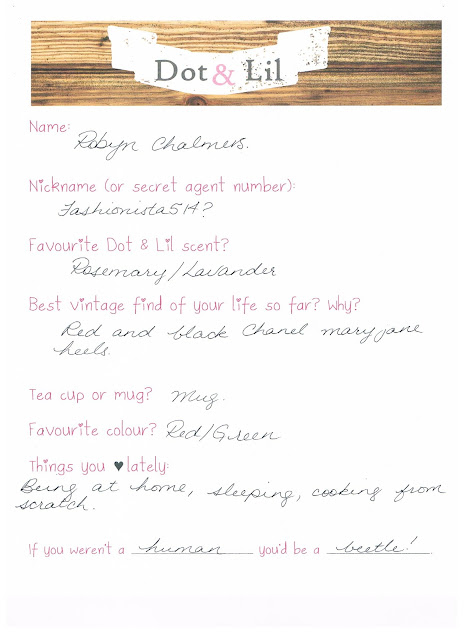 Dot & Lil
Name:
Robyn Chalmers.
Nickname (or secret agent number):
Fashionista514?
Favourite Dot & Lil scent?
Rosemary/Lavander
Best vintage find of your life so far? Why?
Red and black Chanel mary jane
heels.
Tea cup or mug? Mug.
Favourite colour? Red/Green
Things you ♥ lately:
Being at home, sleeping, cooking from
scratch.
If you weren't a human you'd be a beetle!